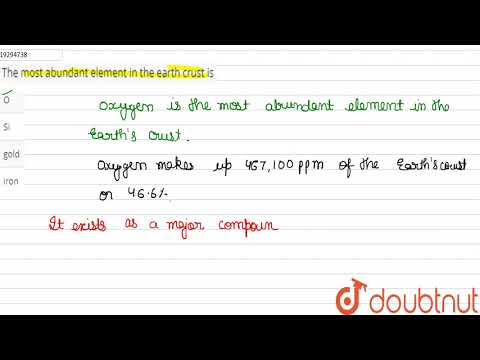 19294738
The most abundant element in the earth crust is
O
Si
gold
iron
Oxygen is the most abundant element in the
Earth's crust.
Oxygen makes up 467,100 ppm of the Earth's crust
or 46.6%.
It exists as a major compoun
doubtnut